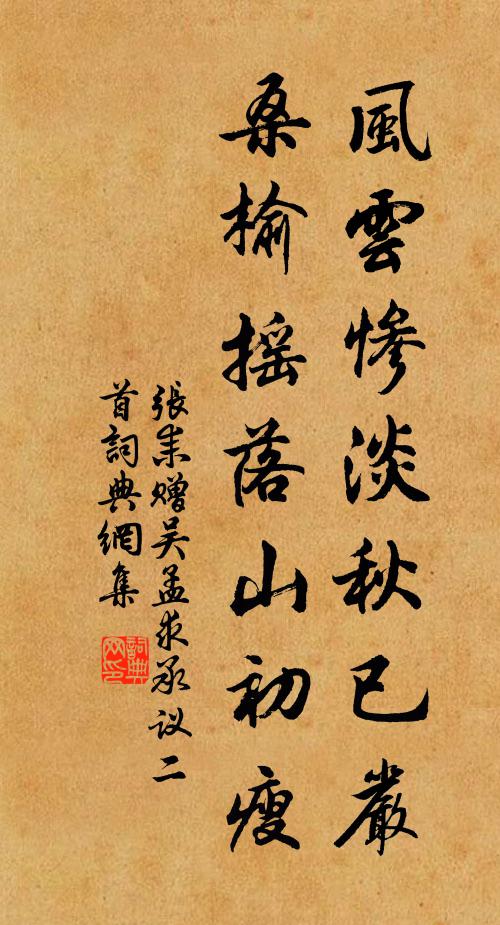 風雲慘淡秋已嚴
桑榆摇落山初瘦
張耒贈吴孟求承议二
首詞典網集
詞典网印